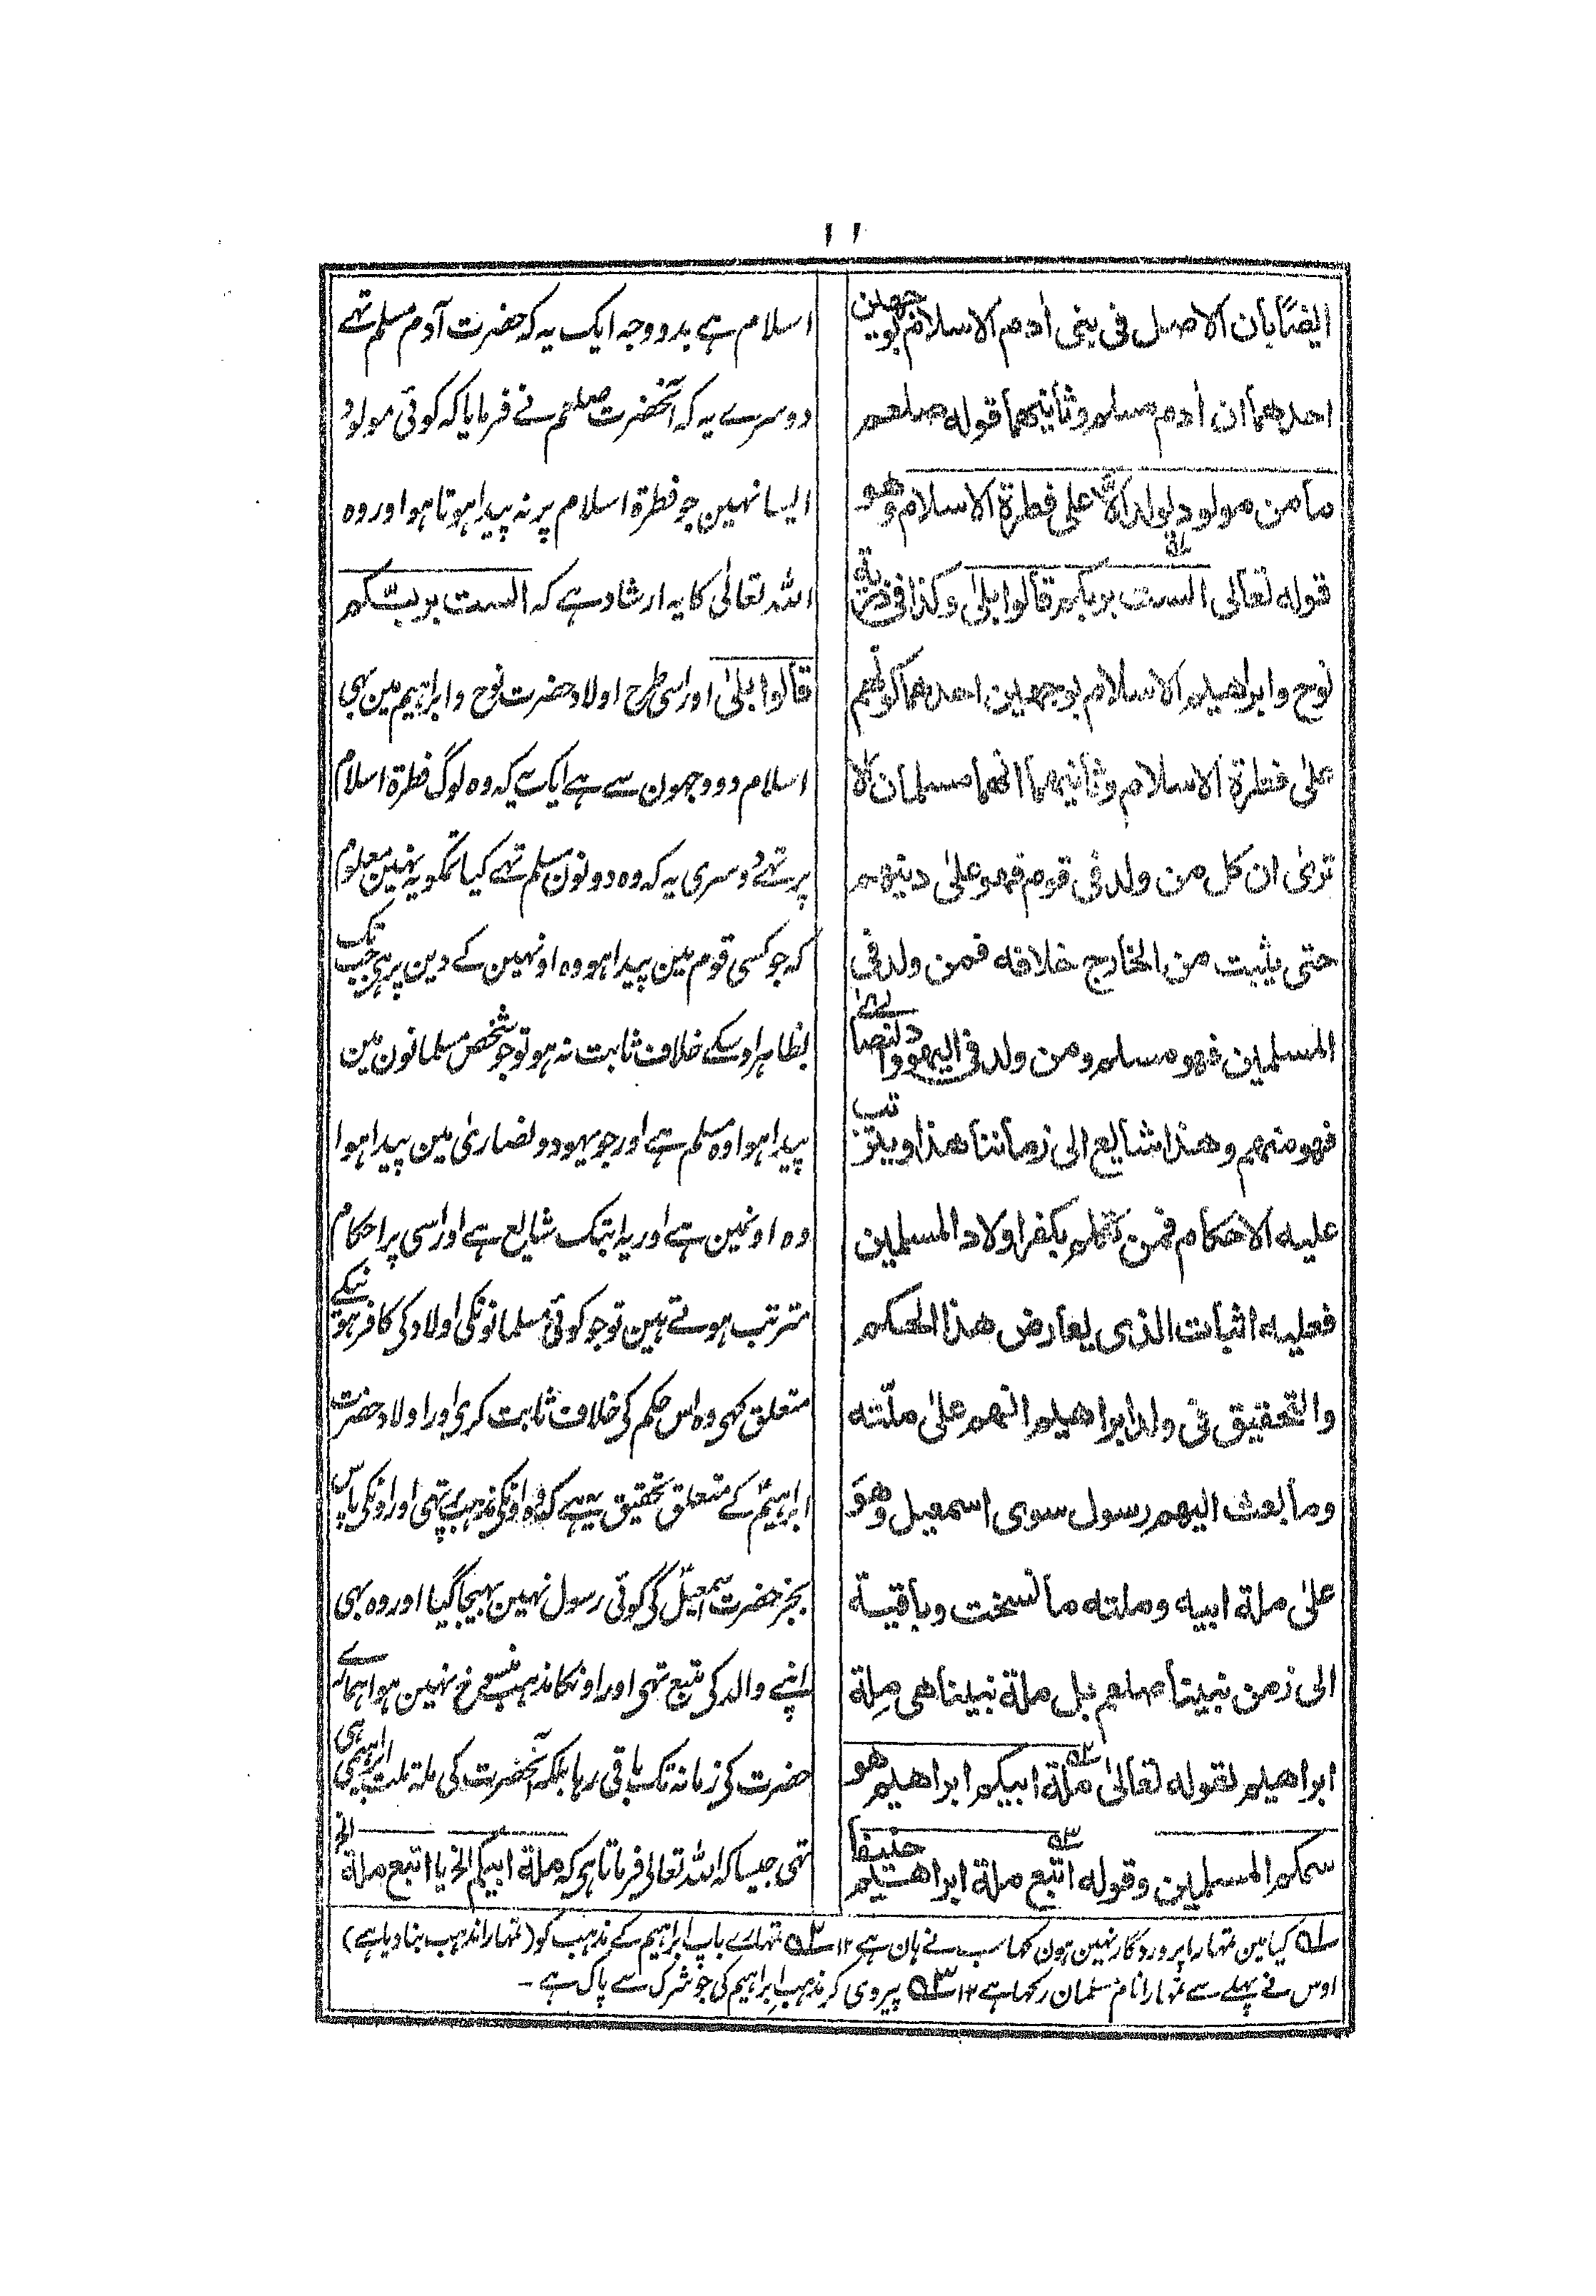 ۱۱
ایضًا بان الاصل فی بنی اٰدم الاسلام بوجھین
احدھما ان اٰدم مسلم وثانیھما قوله صلعم
ما من مولود یولد الا علی فطرة الاسلام وھو
قوله تعالی الست بربکم قالوا بلیٰ وکذا فی ذریة
نوح وابراھیم الاسلام بوجھین احدھما کونھم
علیٰ فطرة الاسلام وثانیھما انھما مسلمان الا
تریٰ ان کل من ولد فی قوم فھو علیٰ دینھم
حتی یثبت من الخارج خلافه فمن ولد فی
المسلمین فھو مسلم ومن ولد فی الیھود والنصاریٰ
فھو منھم وھذا شایع الی زماننا ھذا ویترتب
علیه الاحکام فمن تکلم بکفر اولاد المسلمین
فعلیه اثبات الذی یعارض ھذا الحکم
والتحقیق فی ولد ابراھیم انھم علیٰ ملّته
وما بعث الیھم رسول سوی اسمعیل وھوَ
علیٰ ملة ابیه وملته ما نسخت وباقیة
الی زمن نبینا صلعم بل ملة نبینا ھی مِلة
ابراھیم لقوله تعالیٰ ملة ابیکم ابراھیم ھو
سمکم المسلمین وقوله اتبع ملة ابراھیم حنیفا
اسلام ہے بدو وجہ ایک یہ کہ حضرت آدم مسلم تھے
دوسرے یہ کہ آنحضرت صلعم نے فرمایا کہ کوئی مولود
ایسا نہین جو فطرة اسلام پر نہ پیدا ہوتا ہو اور وہ
اللہ تعالٰی کا یہ ارشاد ہے کہ الست بربّکم
قالوا بلیٰ اور اسی طرح اولاد حضرت نوح و ابراہیم مین بھی
اسلام دو وجھون سے ہے ایک یہ کہ وہ لوگ فطرة اسلام
پر تھے دوسری یہ کہ وہ دونون مسلم تھے کیا تمکو یہ نہین معلوم
کہ جو کسی قوم مین پیدا ہو وہ اونہین کے دین پر ہی جب تک
بظاہر اوسکے خلاف ثابت نہ ہو تو جو شخص مسلمانون مین
پیدا ہوا وہ مسلم ہے اور جو یہود و نصاریٰ مین پیدا ہوا
وہ اونمین ہے اور یہ ابتک شایع ہے اور اسی پر احکام
مترتب ہوتے ہین تو جو کوئی مسلمانونکی اولاد کی کافر ہونیکے
متعلق کہی وہ اس حکم کی خلاف ثابت کری اور اولاد حضرت
ابراہیمؑ کے متعلق تحقیق یہ ہے کہ وہ اونکی مذہب پر تھی اور اونکی پاس
بجز حضرت اسمعیلؑ کی کوئی رسول نہین بھیجا گیا اور وہ بھی
اپنے والد کی متبع تھی اور اونکا مذہب منسوخ نہین ہوا ہمارے
حضرت کی زمانہ تک باقی رہا بلکہ آنحضرت کی ملة ملت ابراہیمی ہی
تھی جیسا کہ اللہ تعالی فرماتا ہی کہ ملة ابیکم الخ یا اتبع ملة الخ
ـلـه کیا مین تمہارا پروردگار نہین ہون کہا سب نے ہان ہے ۱۲ ـ۲ـه تمہارے باپ ابراہیم کے مذہب کو (تمہارا مذہب بنا دیا ہے)
اوس نے پہلے سے تمہارا نام مسلمان رکھا ہے ۱۲ ـ۳ـه پیروی کر مذہبِ ابراہیم کی جو شرک سے پاک ہے -